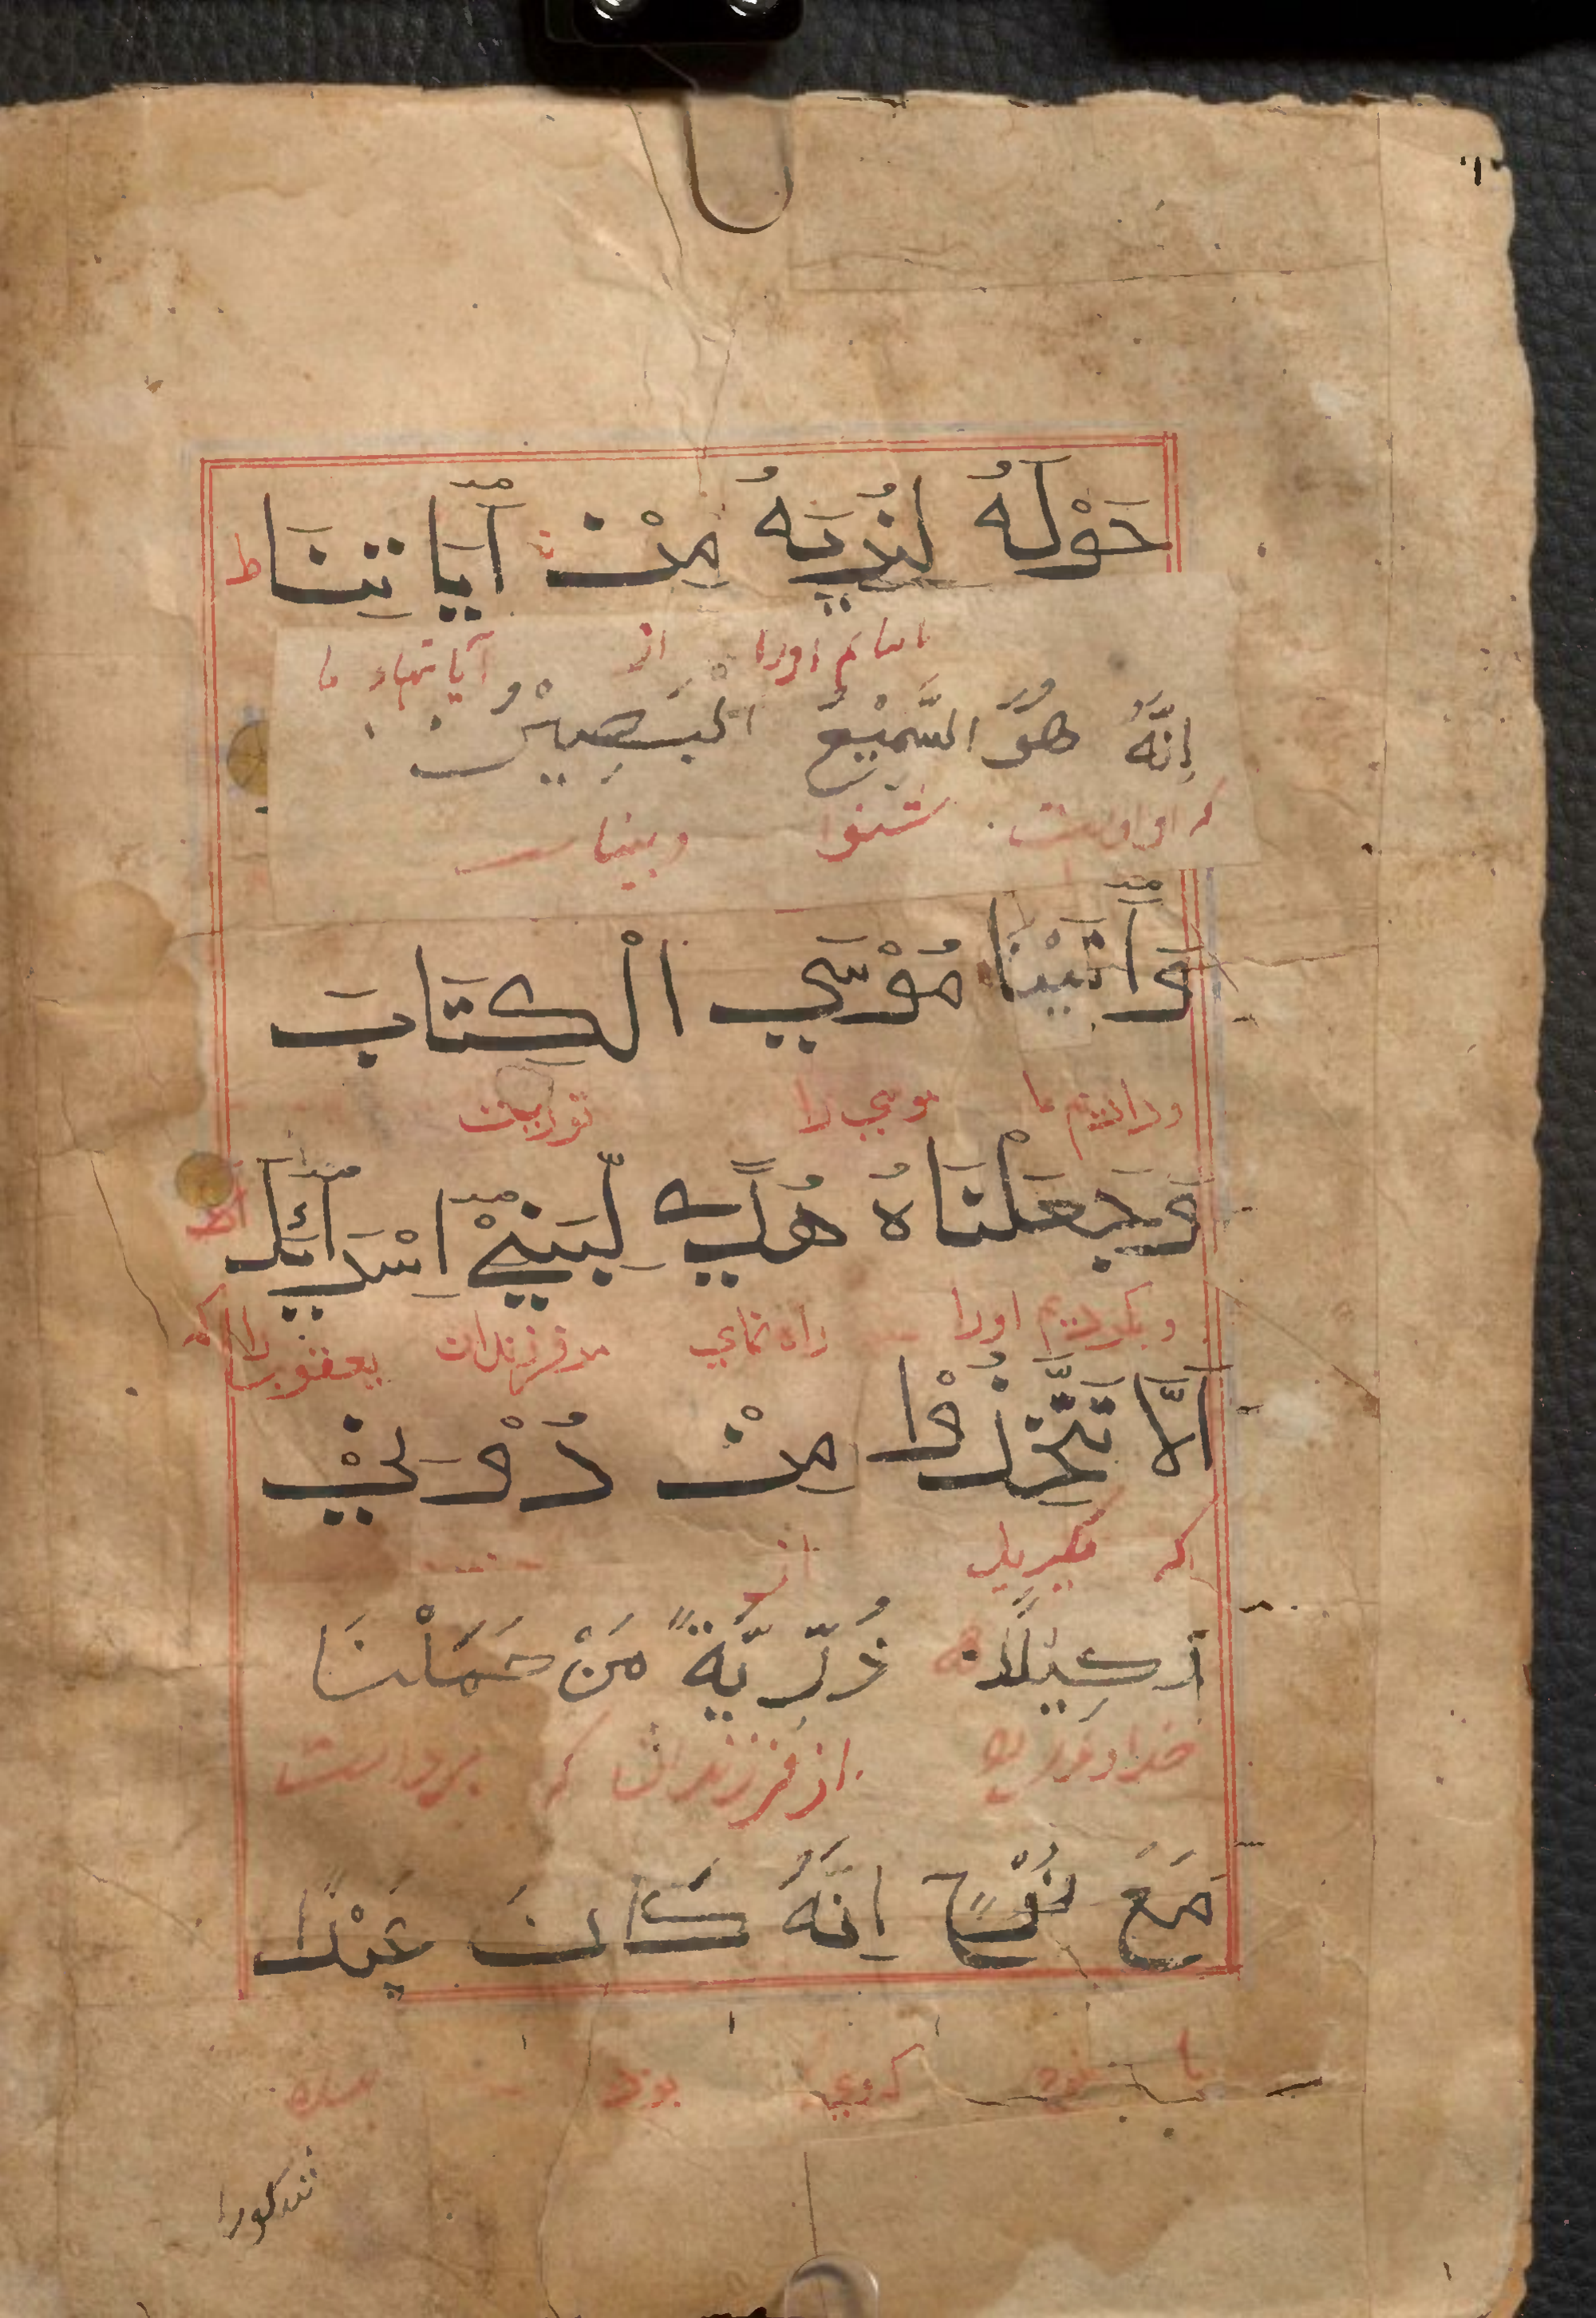 حَوْلَهُ لِنُرِيَهُ مِنْ آيَاتِنَا ط
از آیاتهاء ما
اِنَّهُ هُوَ السَّمِيْعُ الْبَصِيْرُ
که او اوست شنوا وبینا
وَآتَيْنَا مُوْسَي الْكِتَابَ
ودادیم ما موسي را توریت
وَجَعَلْنَاهُ هُدًي لِّبَنِيْ اِسْرَائِيْلَ
وبکردیم اورا راه نمای مر فرزندان یعقوب را که
اَلَّا تَتَّخِذُوْا مِنْ دُوْنِيْ
که مگیرید از
وَكِيْلًا ذُرِّيَّةً مَنْ حَمَلْنَا
از فرزندان که برداشت
مَعَ نُوْحٍ اِنَّهُ كَانَ عَبْدًا
با نوح که وي بود بنده
شکورا